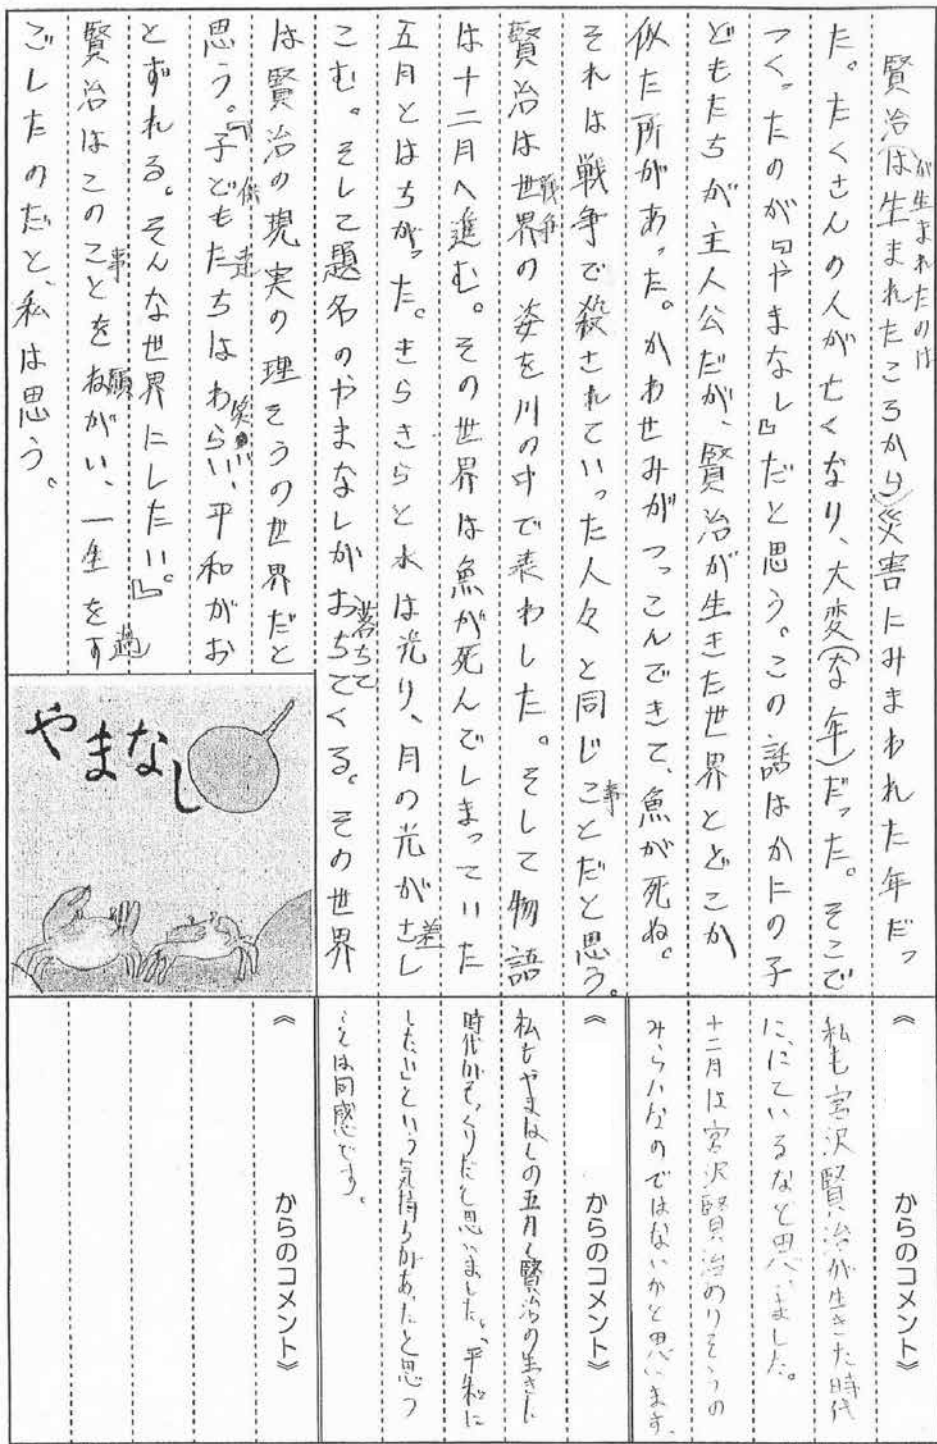 賢治(は生まれたころから)災害にみまわれた年だっ
が生まれたのは
た。たくさんの人が亡くなり、大変(な年)だった。そこで
つくったのが『やまなし』だと思う。この話はかにの子
どもたちが主人公だが、賢治が生きた世界とどこか
似た所があった。かわせみがつっこんできて、魚が死ぬ。
それは戦争で殺されていった人々と同じことだと思う。
事
賢治は世界の姿を川の中で表わした。そして物語
戦争
は十二月へ進む。その世界は魚が死んでしまっていた
五月とはちがった。きらきらと水は光り、月の光がさし
差
こむ。そして題名のやまなしがおちてくる。その世界
落ちて
は賢治の現実の理そうの世界だと
思う。『子どもたちはわらい、平和がお
供達
笑い
とずれる。そんな世界にしたい。』
賢治はこのことをねがい、一生をす
事
願
過
ごしたのだと、私は思う。
やまなし
《 からのコメント》
私も宮沢賢治が生きた時代
に、にているなと思いました。
十二月は宮沢賢治のりそうの
みらいなのではないかと思います。
《 からのコメント》
私もやまなしの五月と賢治の生きた
時代がそっくりだと思いました。「平和に
したい」という気持ちがあったと思う
ことは同感です。
《 からのコメント》